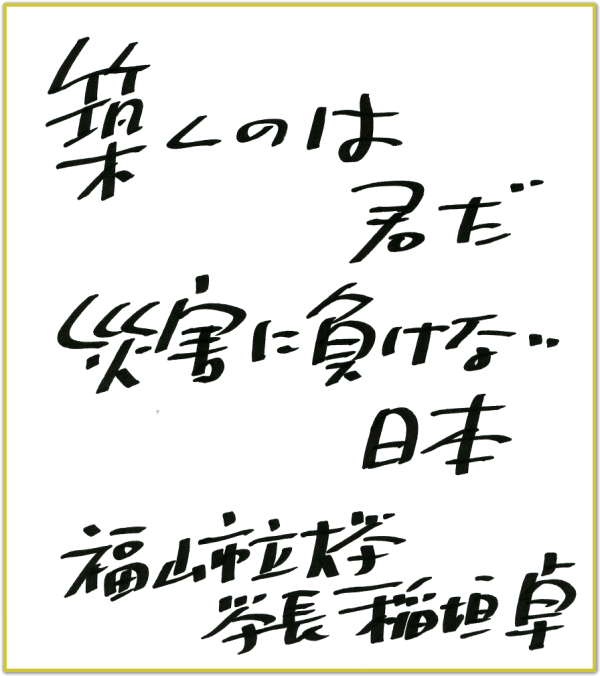 築くのは
君だ
災害に負けない
日本
福山市立大学
学長 稲垣卓